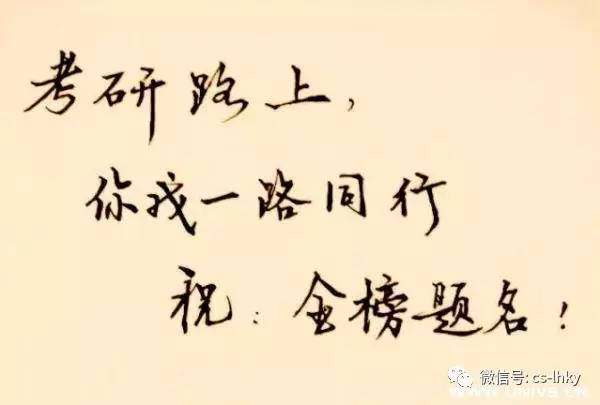 考研路上，
你我一路同行
祝：金榜题名！
微信号: cs-lhky
WWW.UNIVS.CN